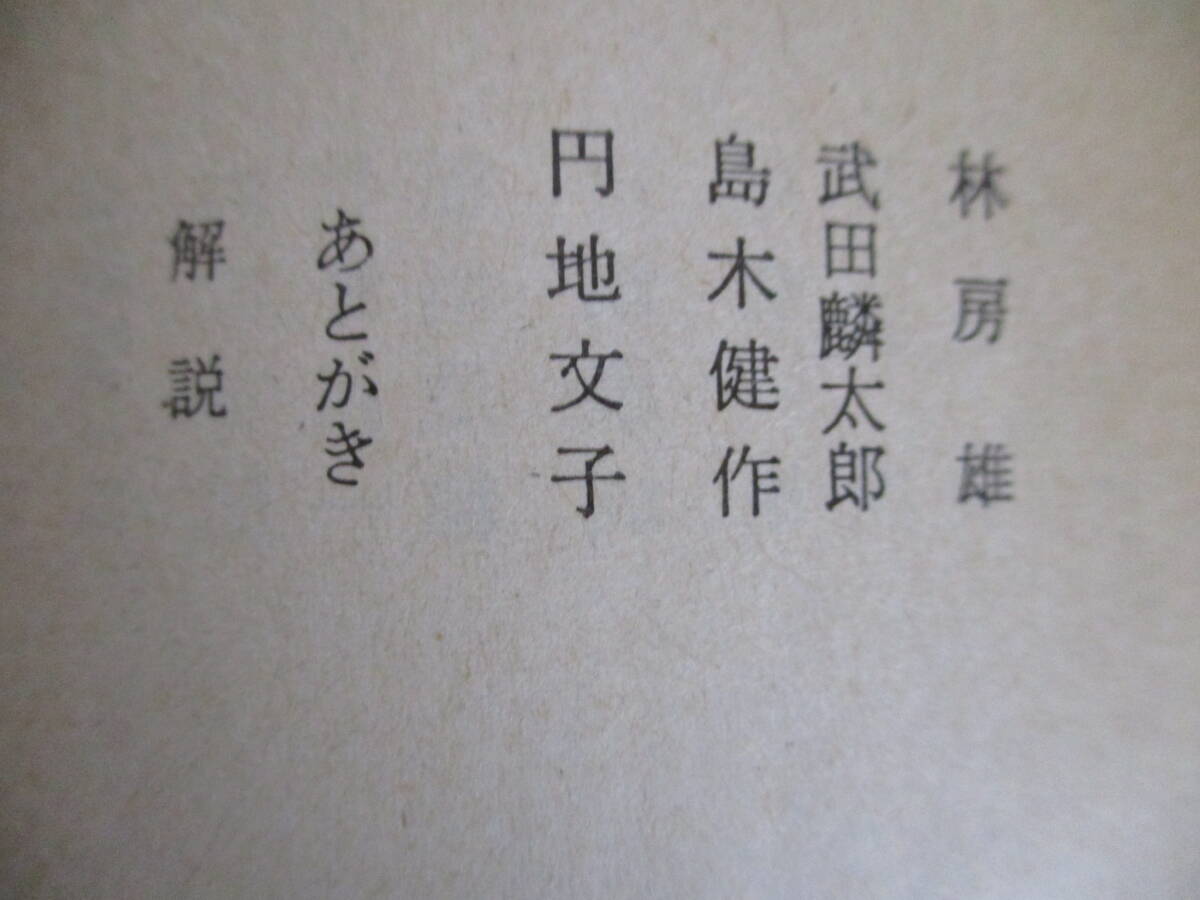 林房雄
武田麟太郎
島木健作
円地文子
あとがき
解説